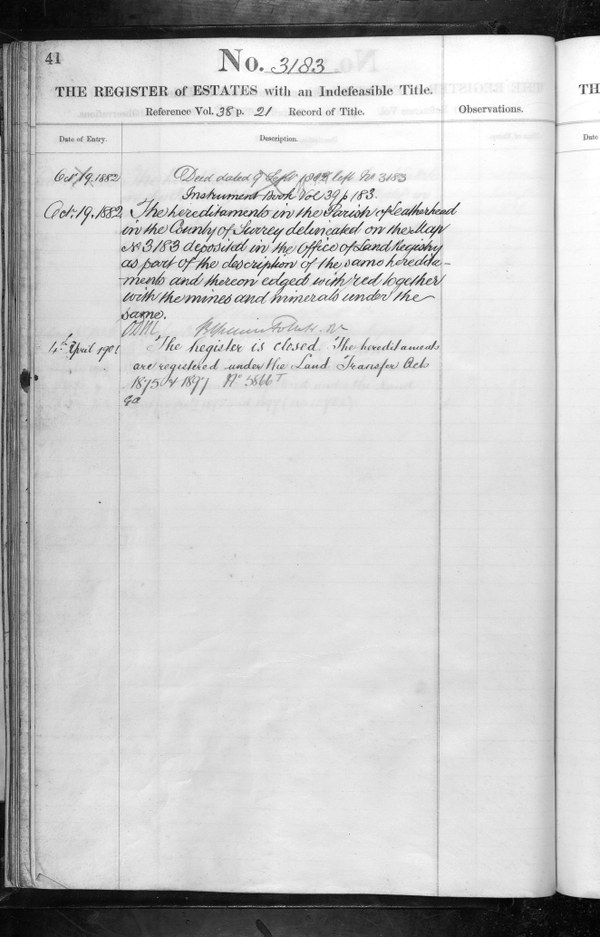 41
No. 3183
THE REGISTER of ESTATES with an Indefeasible Title.
Reference Vol. 38 p. 21 Record of Title.
Observations.
Date of Entry.
Description.
Oct 19. 1882
Deed dated 9 Sept left No 3183
Instrument Book Vol 39 p 183.
Oct. 19. 1882
The hereditaments in the Parish of Leatherhead
in the County of Surrey delineated on the Map
No 3183 deposited in the Office of Land Registry
as part of the description of the same heredita-
ments and thereon edged with red together
with the mines and minerals under the
same.
4th April 1901
The Register is closed. The hereditaments
are registered under the Land Transfer Acts
1875 & 1897 No 5866T
TH
Date